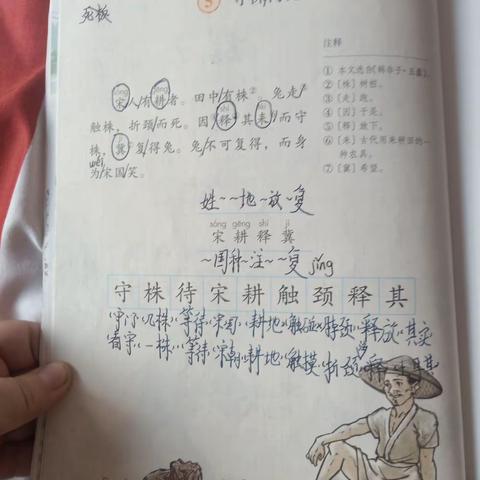 死板
5
注释
sòng gēng
宋人有耕者。田中有株②。兔走③
触株,折颈而死。因④释⑤其耒⑥而守
株,冀⑦复得兔。兔不可复得,而身
wéi
为宋国笑。
① 本文选自《韩非子·五蠹》。
② [株] 树桩。
③ [走] 跑。
④ [因] 于是。
⑤ [释] 放下。
⑥ [耒] 古代用来耕田的一
种农具。
⑦ [冀] 希望。
姓~ ~地 ~放 ~复
sòng gēng shì jì
宋 耕 释 冀
~国 种~ 注~ ~复 jǐng
守 株 待 宋 耕 触 颈 释 其
几株 等待 宋 耕地 触碰 脖颈 释放 其实
看守 一株 等待 宋朝 耕地 触摸 折颈 释